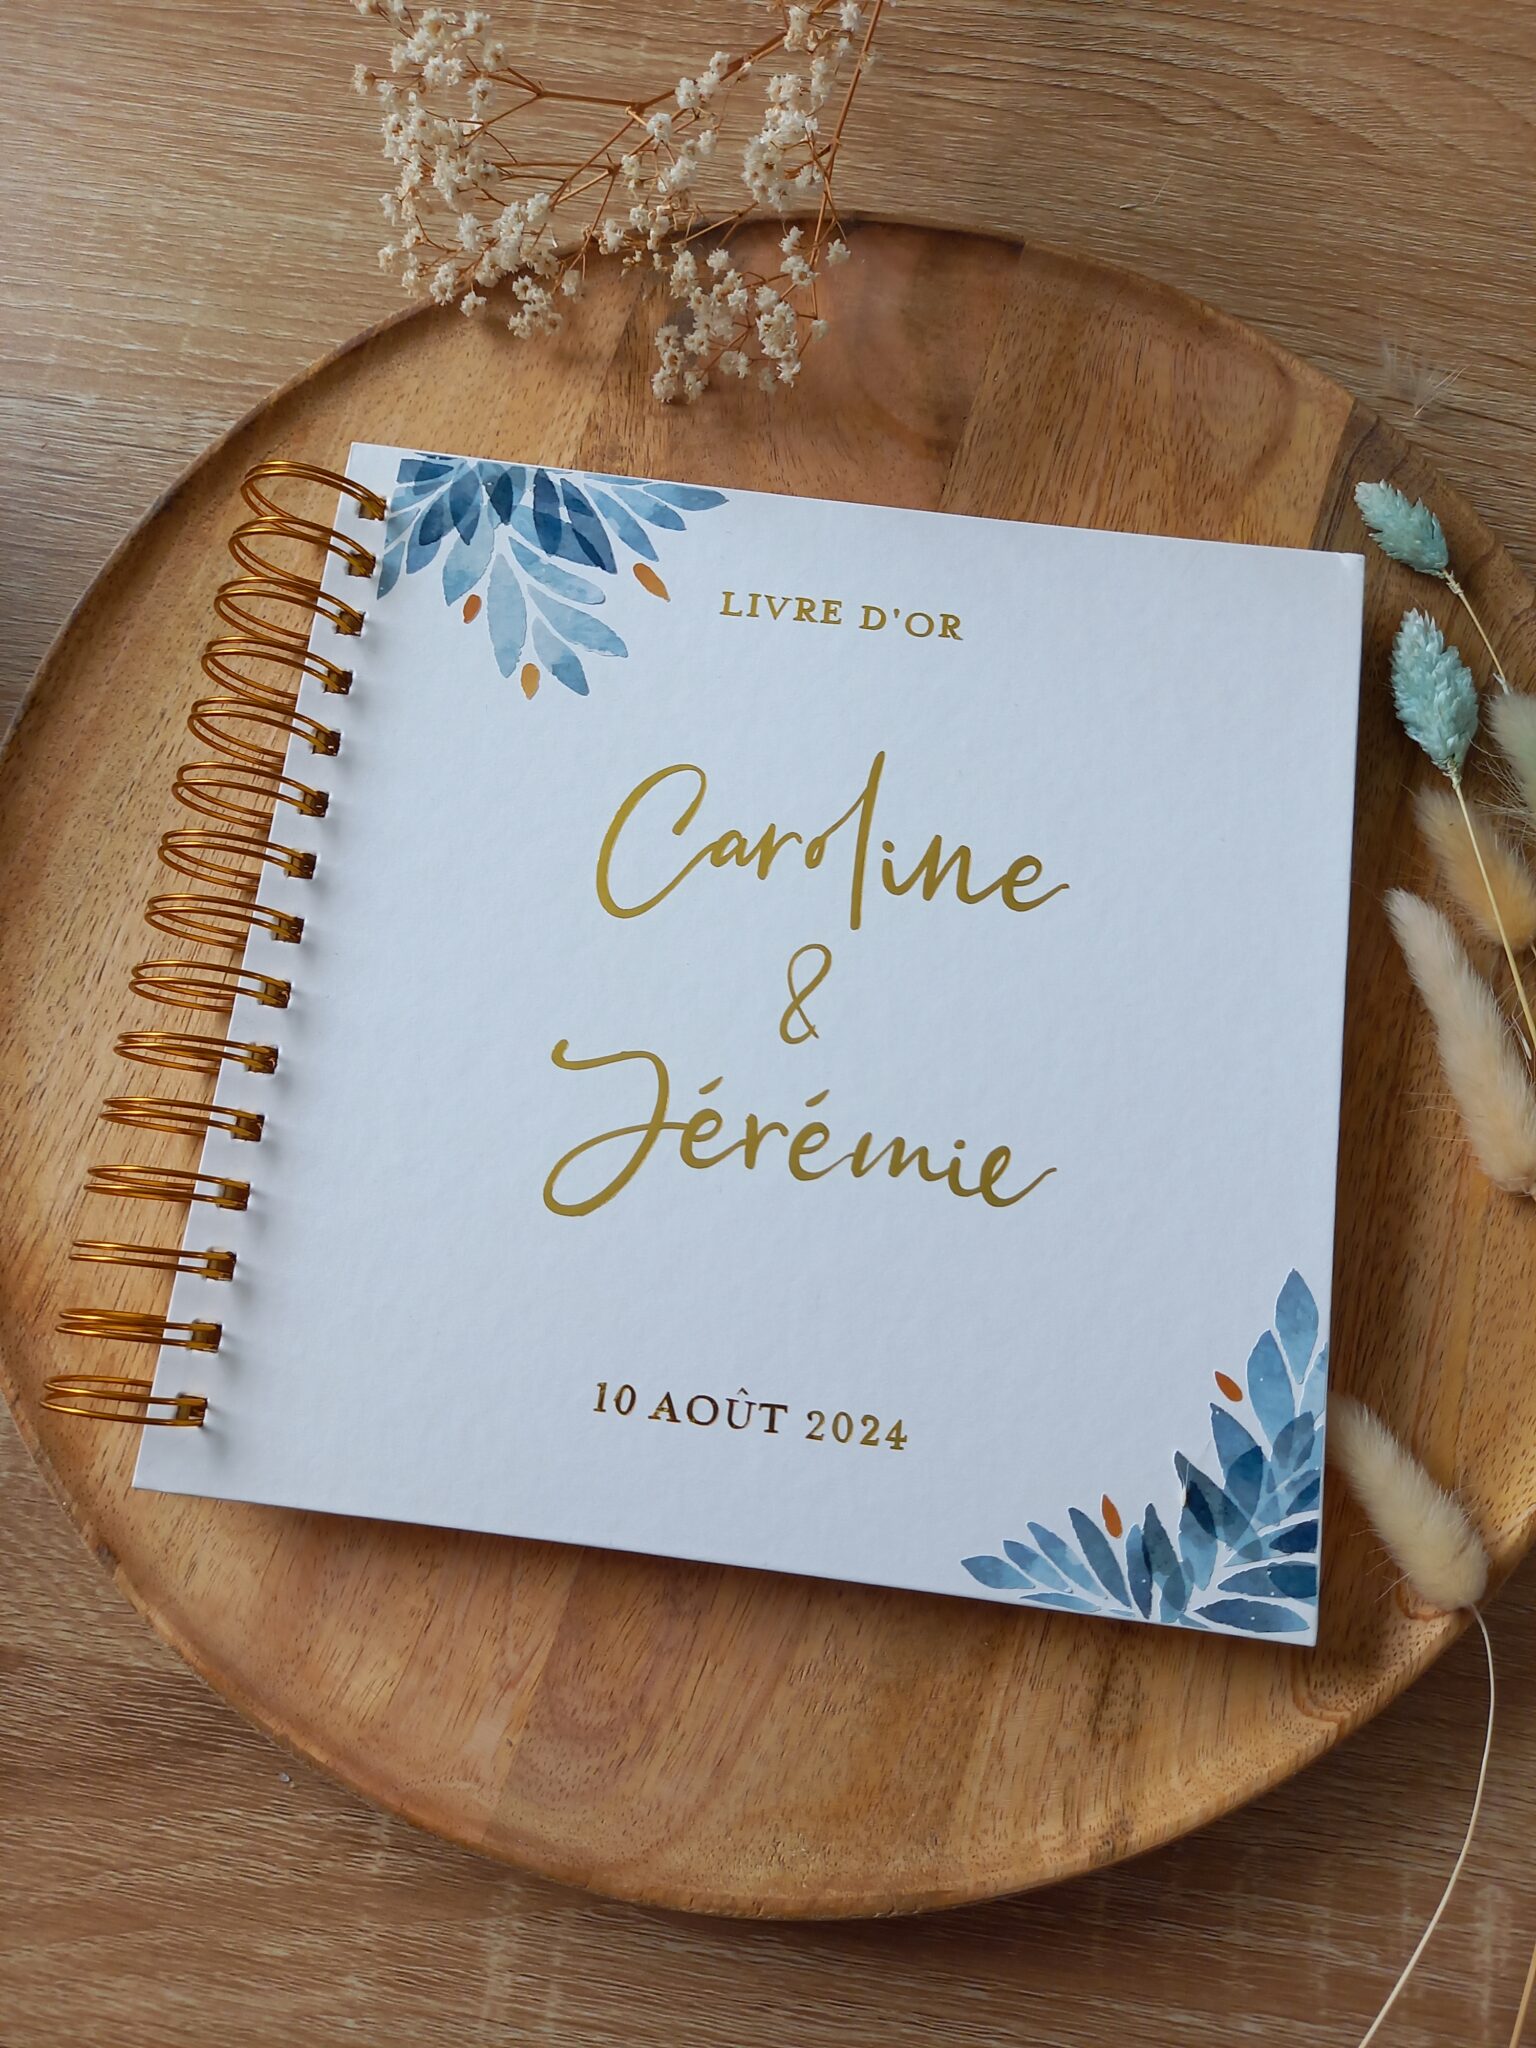 LIVRE D'OR
Caroline
&
Jérémie
10 AOÛT 2024